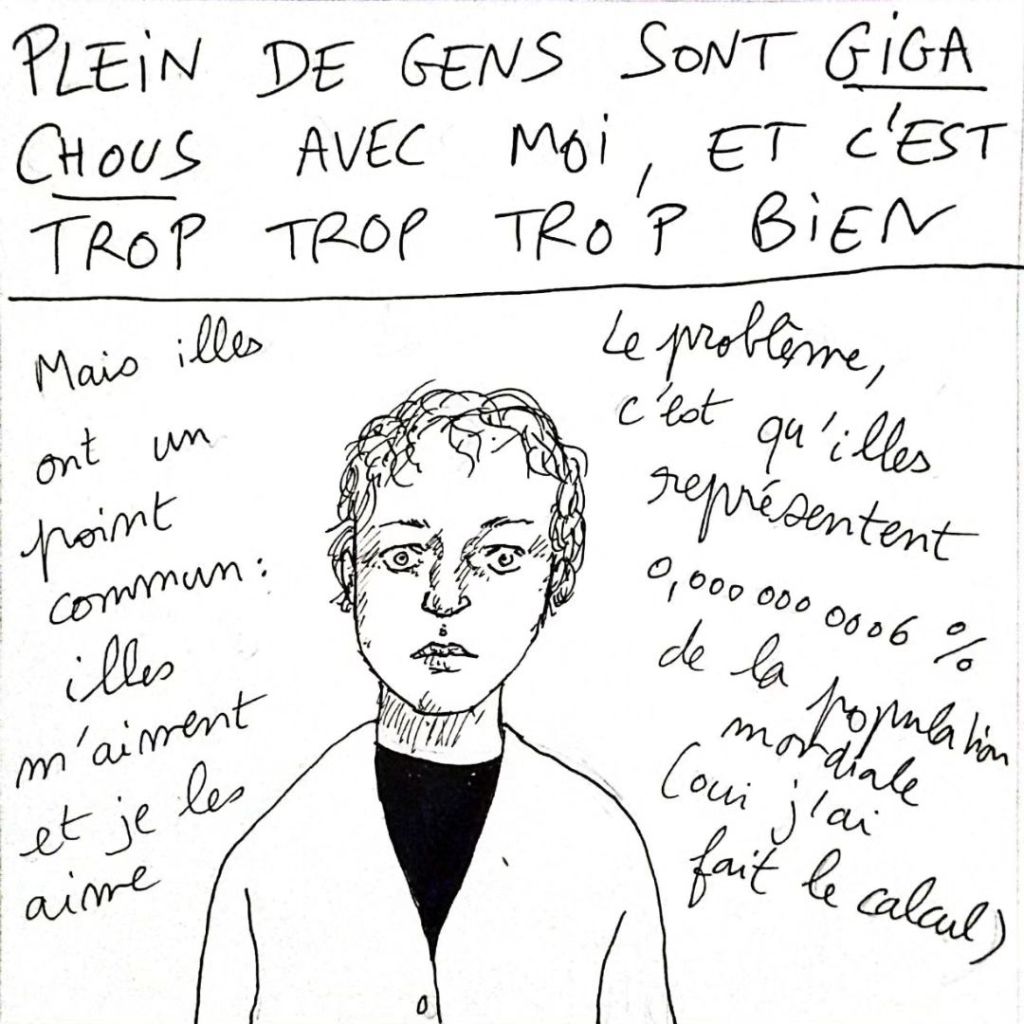 PLEIN DE GENS SONT GIGA
CHOUS AVEC MOI, ET C'EST
TROP TROP TROP BIEN
Mais illes
ont un
point
commun:
illes
m'aiment
et je les
aime
Le problème,
c'est qu'illes
représentent
0,000 000 0006 %
de la population
mondiale
(oui j'ai
fait le calcul)